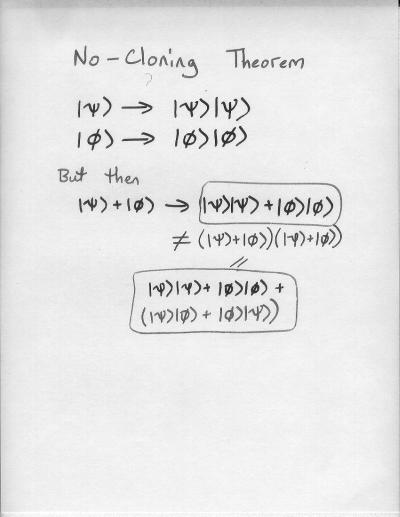 No-Cloning Theorem
?
|ψ⟩ → |ψ⟩|ψ⟩
|ϕ⟩ → |ϕ⟩|ϕ⟩
But then
|ψ⟩+|ϕ⟩ → |ψ⟩|ψ⟩+|ϕ⟩|ϕ⟩
≠ (|ψ⟩+|ϕ⟩)(|ψ⟩+|ϕ⟩)
=
|ψ⟩|ψ⟩+|ϕ⟩|ϕ⟩+
(|ψ⟩|ϕ⟩+|ϕ⟩|ψ⟩)